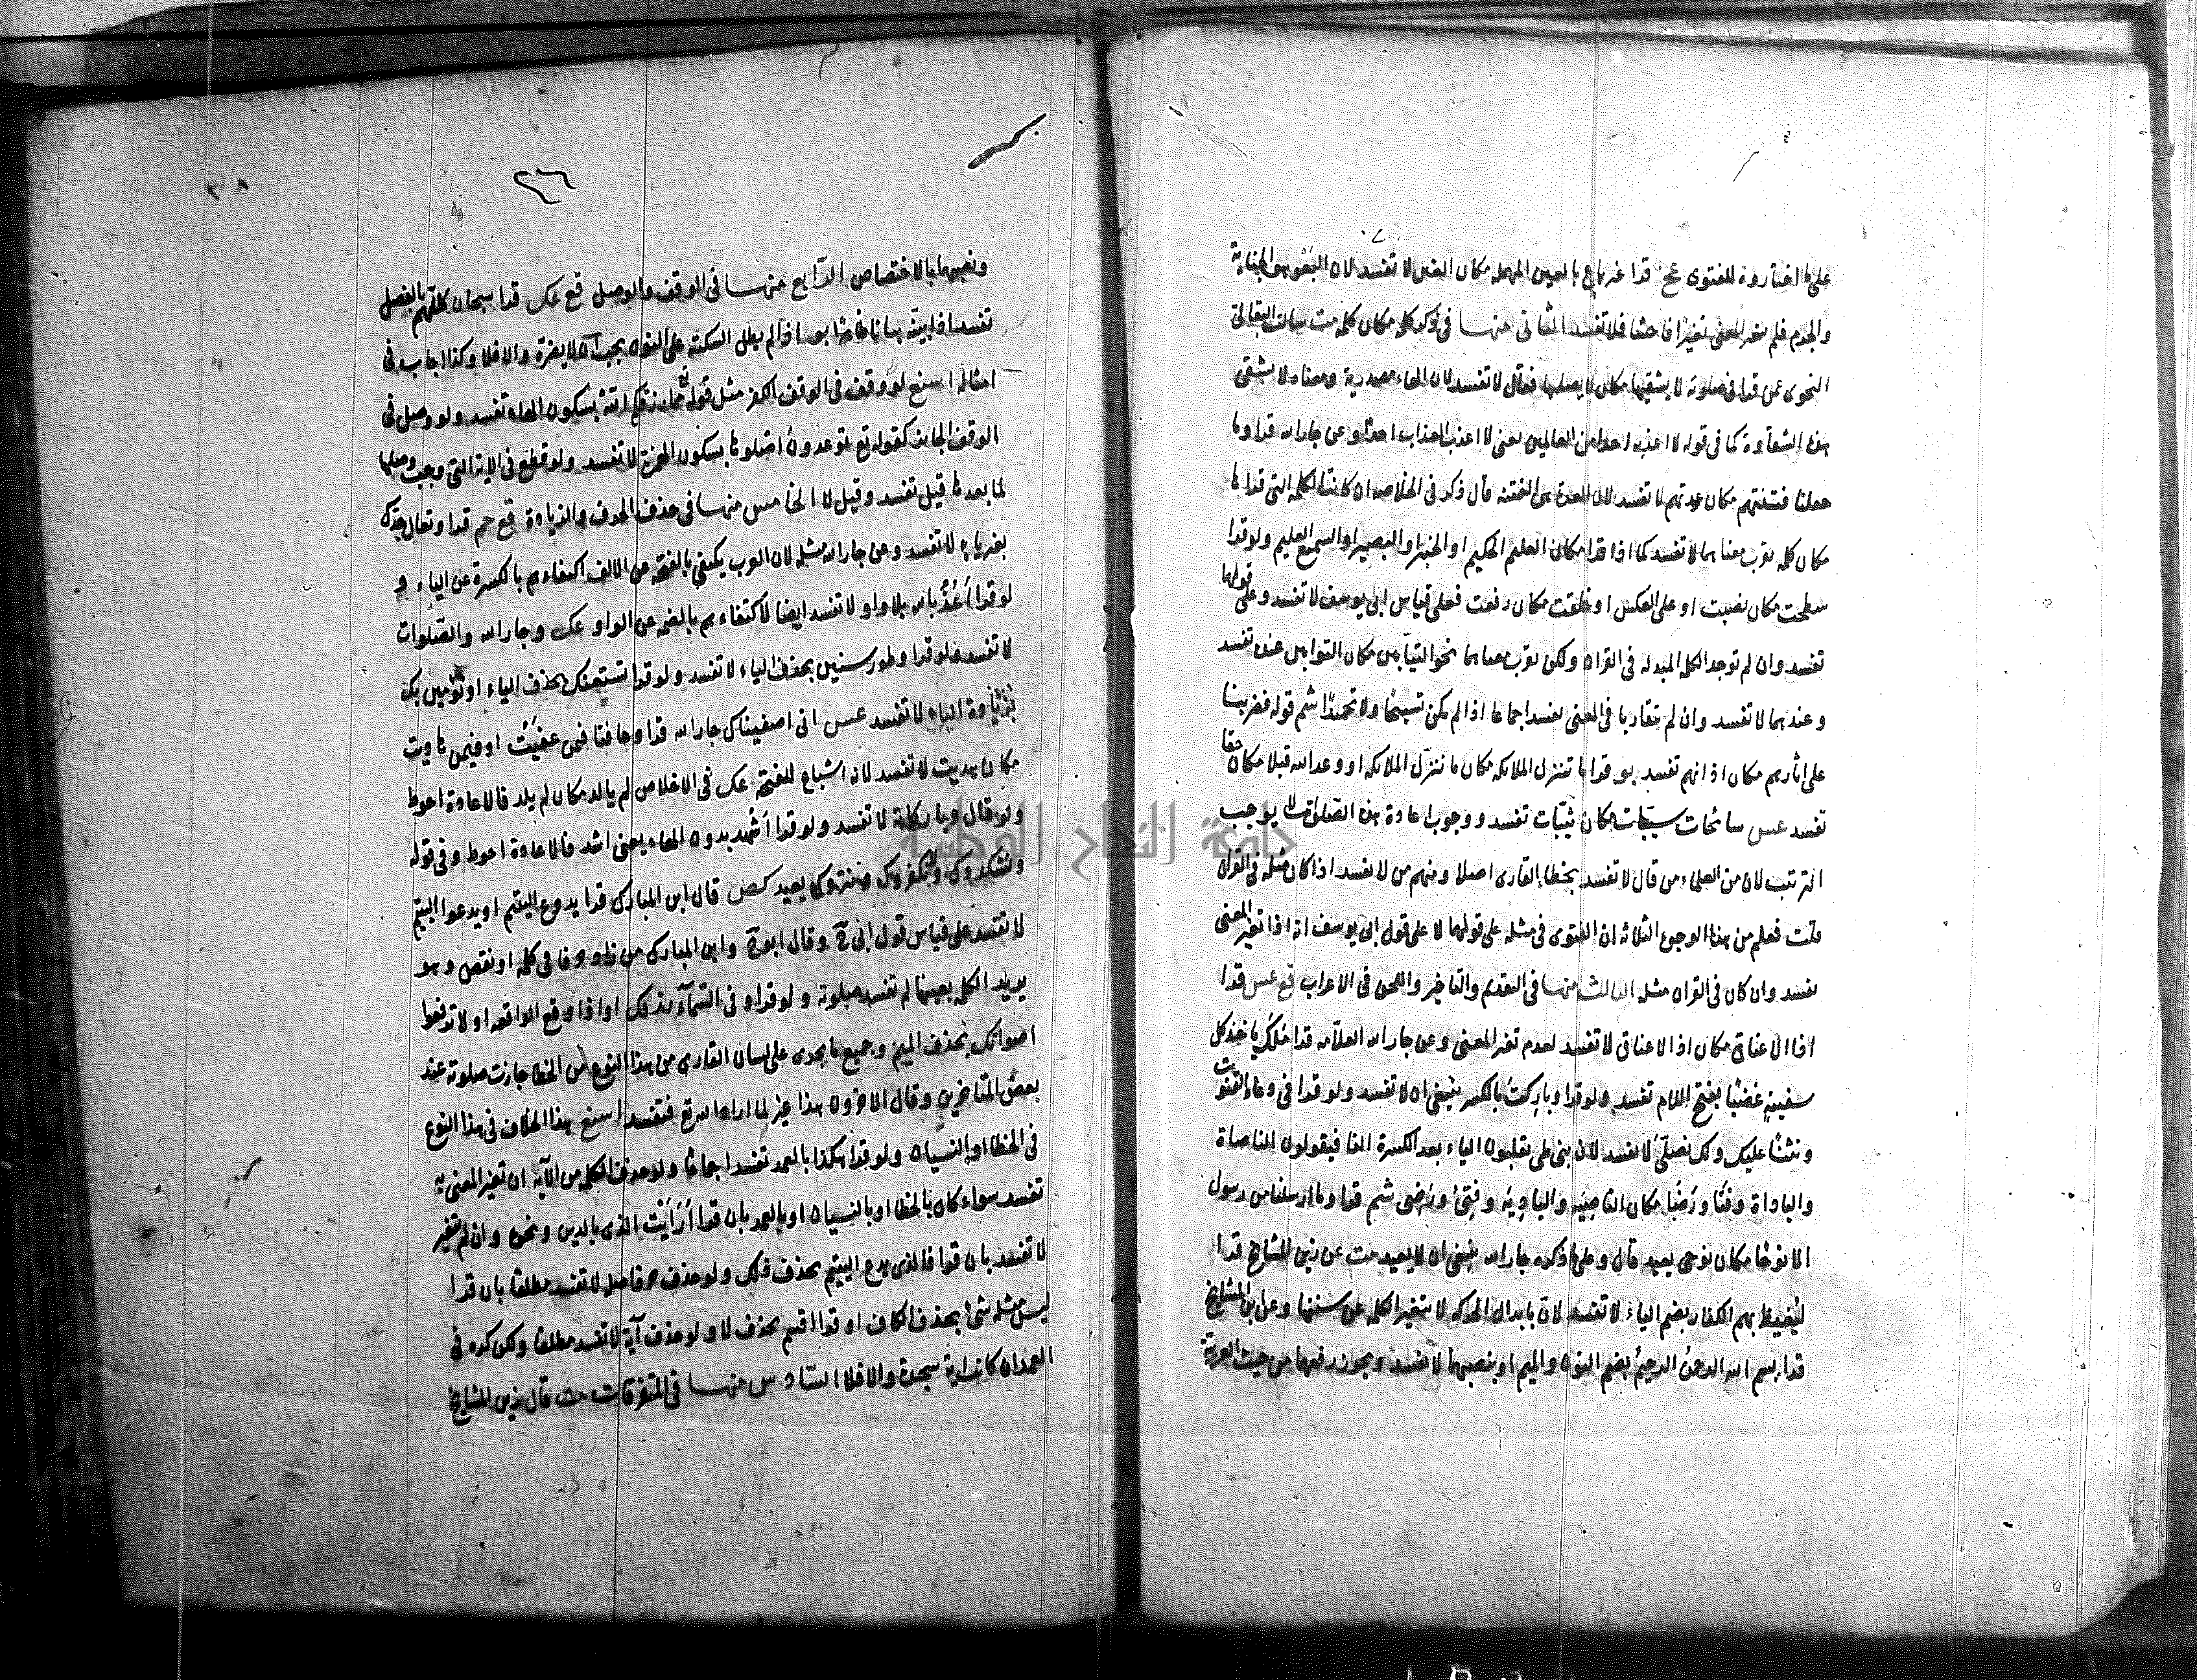 على ما اختاروه للفتوى عج قرا غير باع بالعين المهملة مكان الغين لا تفسد لان البغو هو الجناية
والجرم فلم يتغير المعنى تغيرا فاحشا فلا تفسد الثانى منها فى ذكر كلمة مكان كلمة مت سالت البقالى
النحوى عمن قرا فى صلوته لا يشقيها مكان لا يصليها فقال لا تفسد لان الهاء مصدرية ومعناه لا يشقى
هذه الشقاوة كما فى قوله لا اعذبه احدا من العالمين يعنى لا اعذب العذاب احدا وعن جار الله قرا وما
جعلنا فتنتهم مكان عدتهم لا تفسد لان العدة هى الفتنة قال ذكر فى الخلاصة ان كانت الكلمة التى قراها
مكان كلمة يقرب معناها لا تفسد كما اذا قرا مكان العليم الحكيم او الخبير او البصير او السميع العليم ولو قرا
سطحت مكان نصبت او على العكس او خلقت مكان رفعت فعلى قياس ابى يوسف لا تفسد وعلى قولهما
تفسد وان لم توجد الكلمة المبدلة فى القران ولكن يقرب معناها نحو التيابين مكان التوابين عنده تفسد
وعندهما لا تفسد وان لم يتقاربا فى المعنى تفسد اجماعا اذا لم يكن تسبيحا ولا تحميدا شم قوله فضربنا
على اثارهم مكان اذانهم تفسد بو قرا ما تنزل الملائكة مكان ما ننزل الملائكة او وعد الله قبلا مكان حقا
تفسد عس سائحات سيبات مكان ثيبات تفسد ووجوب اعادة هذه الصلوة لا يوجب
الترتيب لان من العلماء من قال لا تفسد بخطا القارى اصلا ومنهم من لا تفسد اذا كان مثله فى القران
قلت فعلم من هذا الوجوه الثلاثة ان الفتوى فى مثله على قولهما لا على قول ابى يوسف انه اذا تغير المعنى
تفسد وان كان فى القران مثله الثالث منها فى التقديم والتاخير واللحن فى الاعراب قع عس قرا
اذا الاعناق مكان اذ الاعناق لا تفسد لعدم تغير المعنى وعن جار الله العلامة قرا ملك ياخذ كل
سفينة غضبا بفتح اللام تفسد ولو قرا وباركت بالكسر ينبغى ان لا تفسد ولو قرا فى دعاء القنوت
ونثنا عليك ولك نصلى لا تفسد لان بنى طى يقلبون الياء بعد الكسرة الفا فيقولون الناصاة
والباداة وفنا ورضا مكان الناصية والبادية وفنى ورضى شم قرا وما ارسلنا من رسول
الا نوحا مكان نوحى يعيد قال وعلى ما ذكره جار الله ينبغى ان لا يعيد مت عن زين المشايخ قرا
ليغيظ بهم الكفار بضم الياء لا تفسد لان بابدال الحركة لا يتغير الكلمة عن سننها وعن ابن المشايخ
قرا بسم الله الرحمن الرحيم بضم النون والميم او بنصبهما لا تفسد ويجوز رفعها من حيث العربية
٢٦
ونصبهما بالاختصاص الرابع منها فى الوقف والوصل قع عك قرا سبحان كلهم بالفصل
تفسد اذا بينه بيانا ظاهرا بو اذا لم يطل السكتة على النون يجب ان لا يضره والا فلا وكذا اجاب فى
امثاله اسنع لو وقف فى الوقف الكفر مثل قوله تع مما رزقكم الله بسكون الهاء تفسد ولو وصل فى
الوقف الجائز كقوله تع توعدون اصلوها بسكون الهمزة لا تفسد ولو قطع فى الاية التى وجب وصلها
لما بعدها قيل تفسد وقيل لا الخامس منها فى حذف الحرف والزيادة قع حم قرا وتعال جدك
بغير ياء لا تفسد وعن جار الله مثله لان العرب يكتفى بالفتحة عن الالف اكتفاءهم بالكسرة عن الياء و
لو قرا اعذ بالله بلا واو لا تفسد ايضا لاكتفاءهم بالضمة عن الواو عك وجار الله والصلوات
لا تفسد ولو قرا وطور سنين بحذف الياء لا تفسد ولو قرا نستعنك بحذف الياء او نؤمين بك
بزيادة الياء لا تفسد عس انى اصفيناك جار الله قرا وعافنا فمن عفيت او فيمن هاديت
مكان هديت لا تفسد لان اشباع للفتحة عك فى الاخلاص لم يالد مكان لم يلد فالاعادة احوط
ولو قال وباركاة لا تفسد ولو قرا اشهد بدون الهاء يعنى اشد فالاعادة احوط وفى قوله
ونشكروك ونكفروك ونتروك يعيد كص قال ابن المبارك قرا يدوع اليتيم او يدعوا اليتيم
لا تفسد على قياس قول ابى ح وقال ابو ح وابن المبارك من زاد حرفا فى كلمة او نقص وهو
يريد الكلمة بعينها لم تفسد صلوته ولو قرا وفى السماء رزقك او اذا وقع الواقعة او لا ترفعوا
اصواتك بحذف الميم وجميع ما يجرى على لسان القارى من هذا النوع من الخطا جازت صلوته عند
بعض المتاخرين وقال الاخرون هذا غير لما اراد الله تع فتفسد اسنع هذا الخلاف فى هذا النوع
فى الخطا او النسيان ولو قرا هكذا بالعمد تفسد اجماعا ولو حذف كلمة من الآية ان تغير المعنى به
تفسد سواء كان بالخطا او بالنسيان او بالعمد بان قرا أرأيت الذى بالدين ونحوه وان لم يتغير
لا تفسد بان قرا فالذى يدع اليتيم بحذف ذلك ولو حذف حرفا صل لا تفسد مطلقا بان قرا
ليس مثله شئ بحذف الكاف او قرا اقسم بحذف لا ولو حذف آية لا تفسد مطلقا ولكن كره فى
العمد ان كانت اية سجدة والا فلا السادس منها فى المتفرقات مت قال زين المشايخ
جامعة النجاح الوطنية